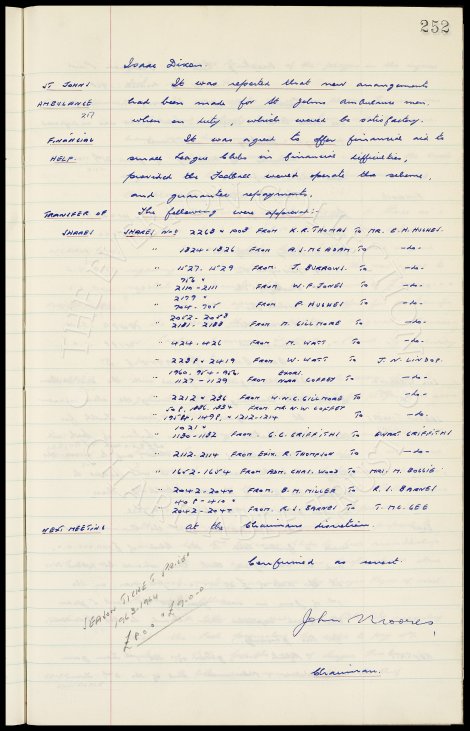 252
Isaac Dixon.
ST JOHNS It was reported that new arrangements
AMBULANCE had been made for St Johns Ambulance men
217 when on duty, which would be satisfactory.
FINANCIAL It was agreed to offer financial aid to
HELP. small League Clubs in financial difficulties,
provided the Football would operate the scheme,
and guarantee repayments.
TRANSFER OF The following were approved:-
SHARES SHARES Nos 2268 & 1008 FROM K.R. THOMAS TO MR. E.H. HUGHES.
" 1824-1826 FROM A.S. MCADAM TO -do-
" 1527-1529 FROM J. BURROWS. TO -do-
956 &
" 2110-2111 FROM W.F. JONES TO -do-
2179 &
" 704-705 FROM P. HUGHES TO -do-
2052-2053
" 2181-2188 FROM M. GILLMORE TO -do-
" 424-426 FROM M. WATT TO -do-
" 2238 & 2419 FROM W. WATT TO J.N. LINDOP.
1960, 954-956, EXORS.
" 1127-1129 FROM COFFEY TO -do-
" 2212 & 236 FROM W.N.G. GILLMORE TO -do-
FROM MR N.W. COFFEY
& 1212-1214 TO -do-
1021 &
" 1130-1132 FROM G.G. GRIFFITHS TO EWART GRIFFITHS
" 2112-2114 FROM EXOR. R. THOMPSON TO -do-
" 1652-1654 FROM ADM. CHAS. WOOD TO MRS. M.
" 2042-2044 FROM B.M. MILLER TO R.S. BARNES
409-410 &
" 2042-2044 FROM R.S. BARNES TO T. MCGEE
NEXT MEETING at the Chairmans discretion.
Confirmed as correct.
SEASON TICKET PRICES
1963-1964
£8.0.0 & £9.0.0
John Moores,
Chairman.